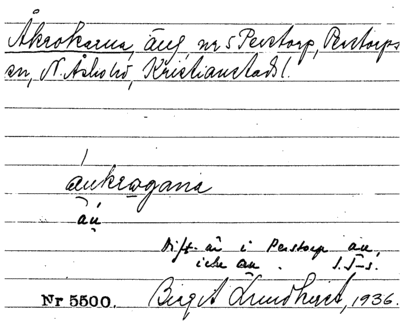 Åkrokarna, äng, nr 5 Perstorp, Perstorps
sn, N. Åsbohd, Kristianstads l.
áukrωgana
áu
Dift. är i Perstorp au,
icke
Nr 5500. Birgit Lundkvist, 1936.